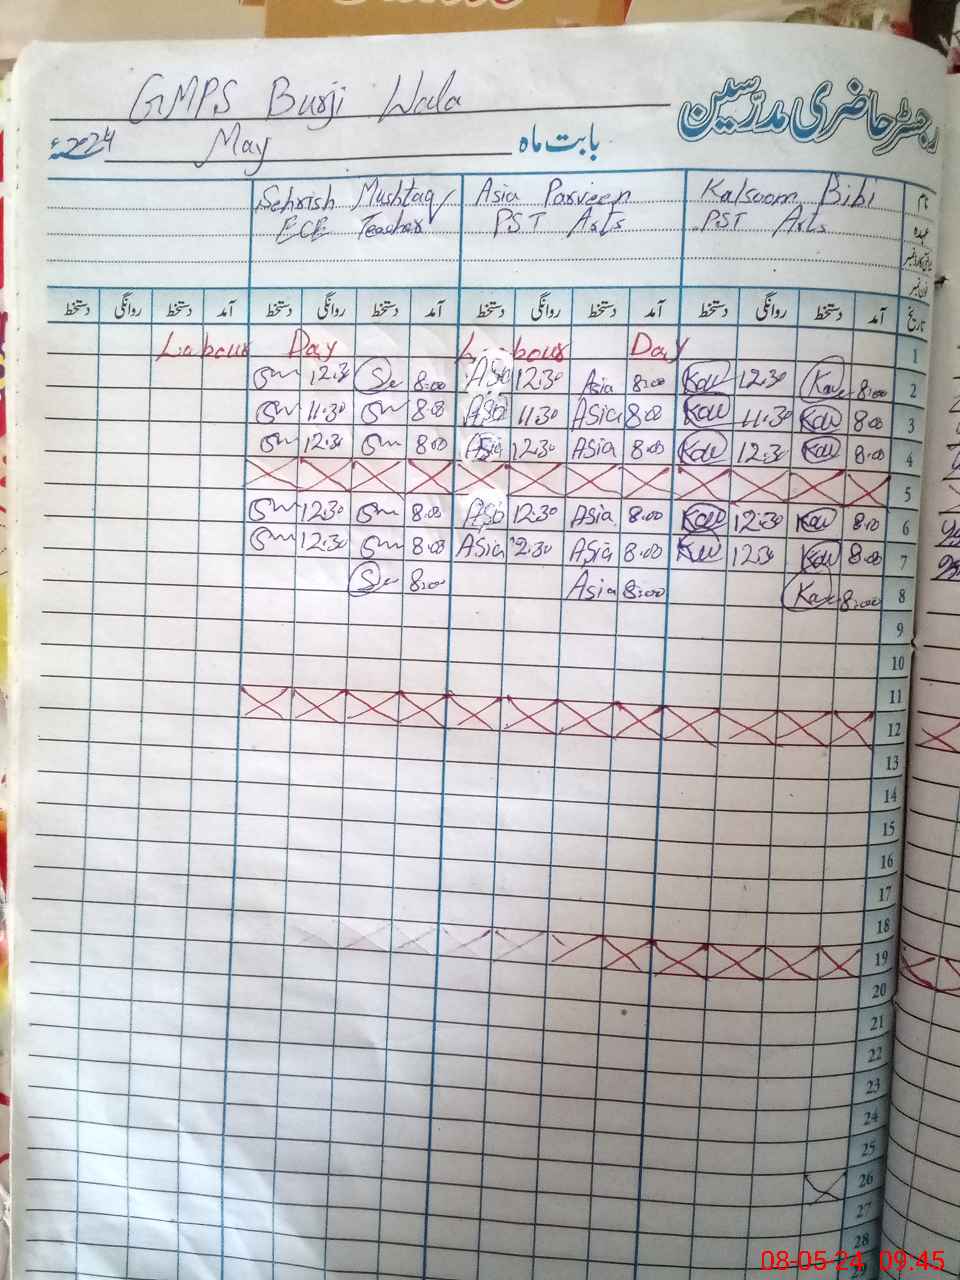 رجسٹر حاضری مدرّسین
GMPS Burji Wala
بابت ماہ May 2024ء
نام Kalsoom Bibi Asia Parveen Sehrish Mushtaq
عہدہ PST Arts PST Arts ECE Teacher
تاریخ آمد دستخط روانگی دستخط آمد دستخط روانگی دستخط آمد دستخط روانگی دستخط آمد دستخط روانگی دستخط
Labour Day Labour Day 1
12:30 Se 8:00 Asia 12:30 Asia 8:00 Kau 12:30 Kau 8:00 2
11:30 8:00 Asia 11:30 Asia 8:00 Kau 11:30 Kau 8:00 3
12:30 8:00 Asia 12:30 Asia 8:00 Kau 12:30 Kau 8:00 4
5
12:30 8:00 Asia 12:30 Asia 8:00 Kau 12:30 Kau 8:00 6
12:30 8:00 Asia 12:30 Asia 8:00 Kau 12:30 Kau 8:00 7
Se 8:00 Asia 8:00 Kau 8:00 8
9
10
11
12
13
14
15
16
17
18
19
20
21
22
23
24
25
26
27
28
08-05-24 09:45